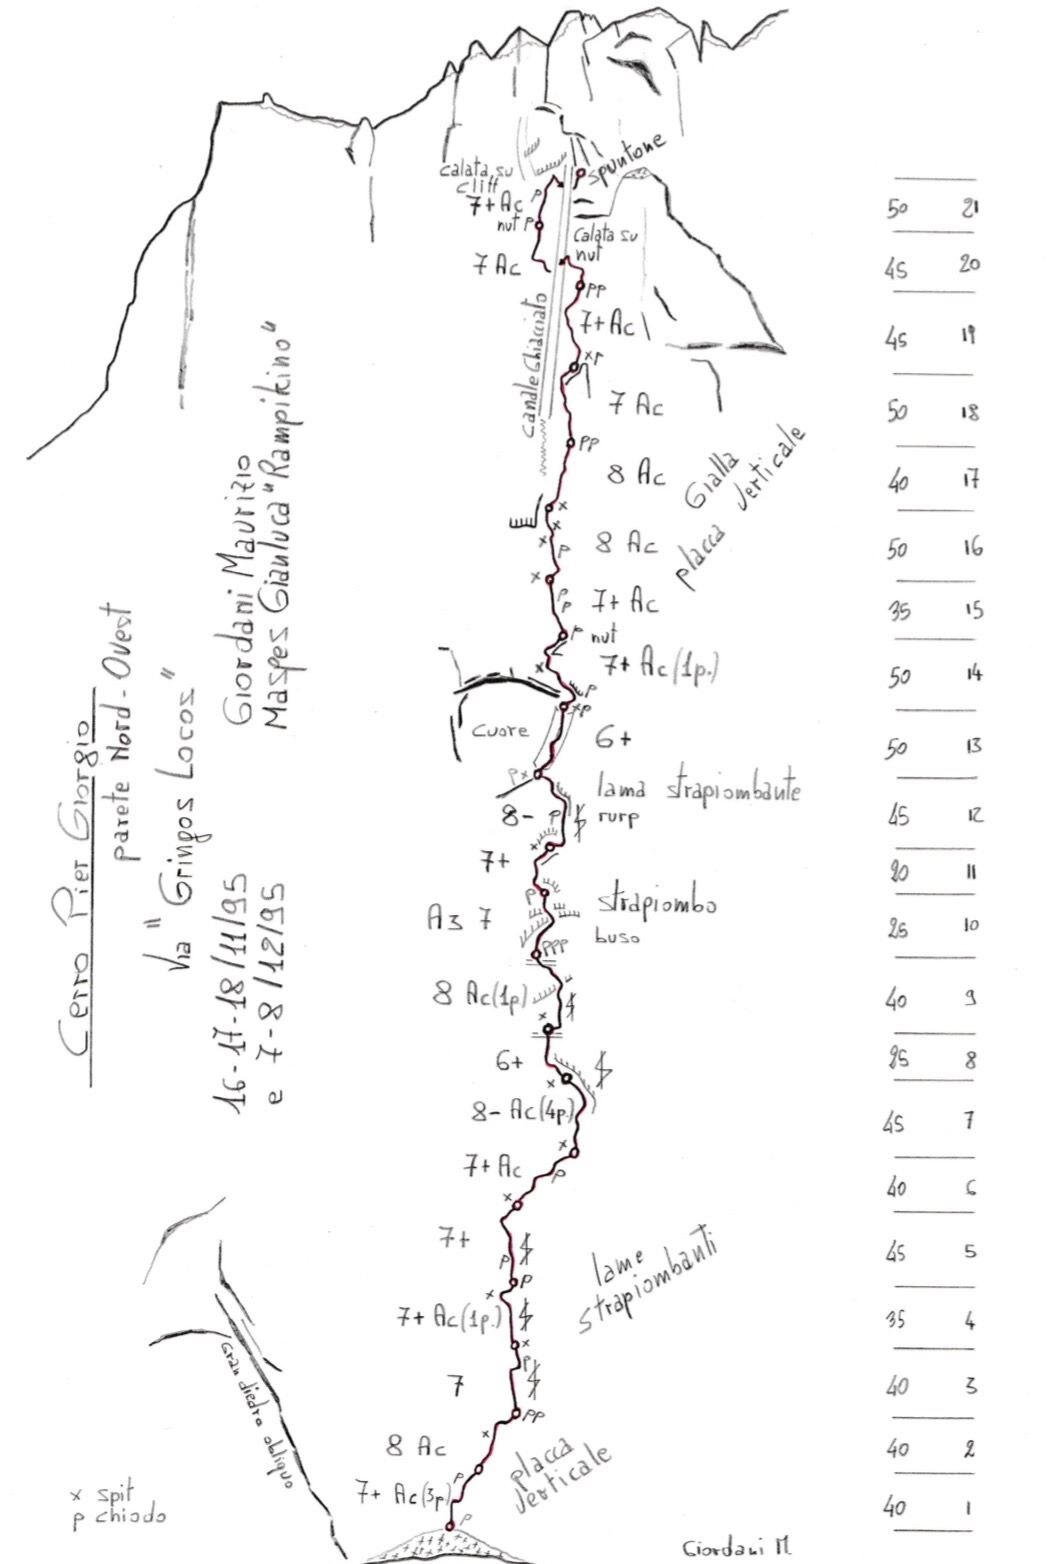 Cerro Pier Giorgio
parete Nord-Ovest
Via "Gringos Locos"
Giordani Maurizio
Maspes Gianluca "Rampikino"
16-17-18/11/95
e 7-8/12/95
spuntone
calata su
cliff
p
7+Ac
nut p
calata su
nut
7 Ac
pp
canale Ghiacciato
7+Ac
xp
7 Ac
pp
8 Ac
Gialla
placca verticale
x
x
x
p
8 Ac
x
p
p
7+ Ac
p nut
x
7+ Ac (1p.)
p
xp
cuore
6+
px
lama strapiombante
rurp
8- p
x
7+
p
strapiombo
buso
A3 7
ppp
8 Ac(1p)
x
6+
x
8- Ac(4p.)
x
7+ Ac
p
x
7+
p
p
lame
strapiombanti
x
7+ Ac(1p.)
x
p
7
pp
x
8 Ac
placca
verticale
p
7+ Ac(3p)
p
Gran diedro obliquo
x spit
p chiodo
50 21
45 20
45 19
50 18
40 17
50 16
35 15
50 14
50 13
45 12
20 11
25 10
40 9
25 8
45 7
40 6
45 5
35 4
40 3
40 2
40 1
Giordani M.